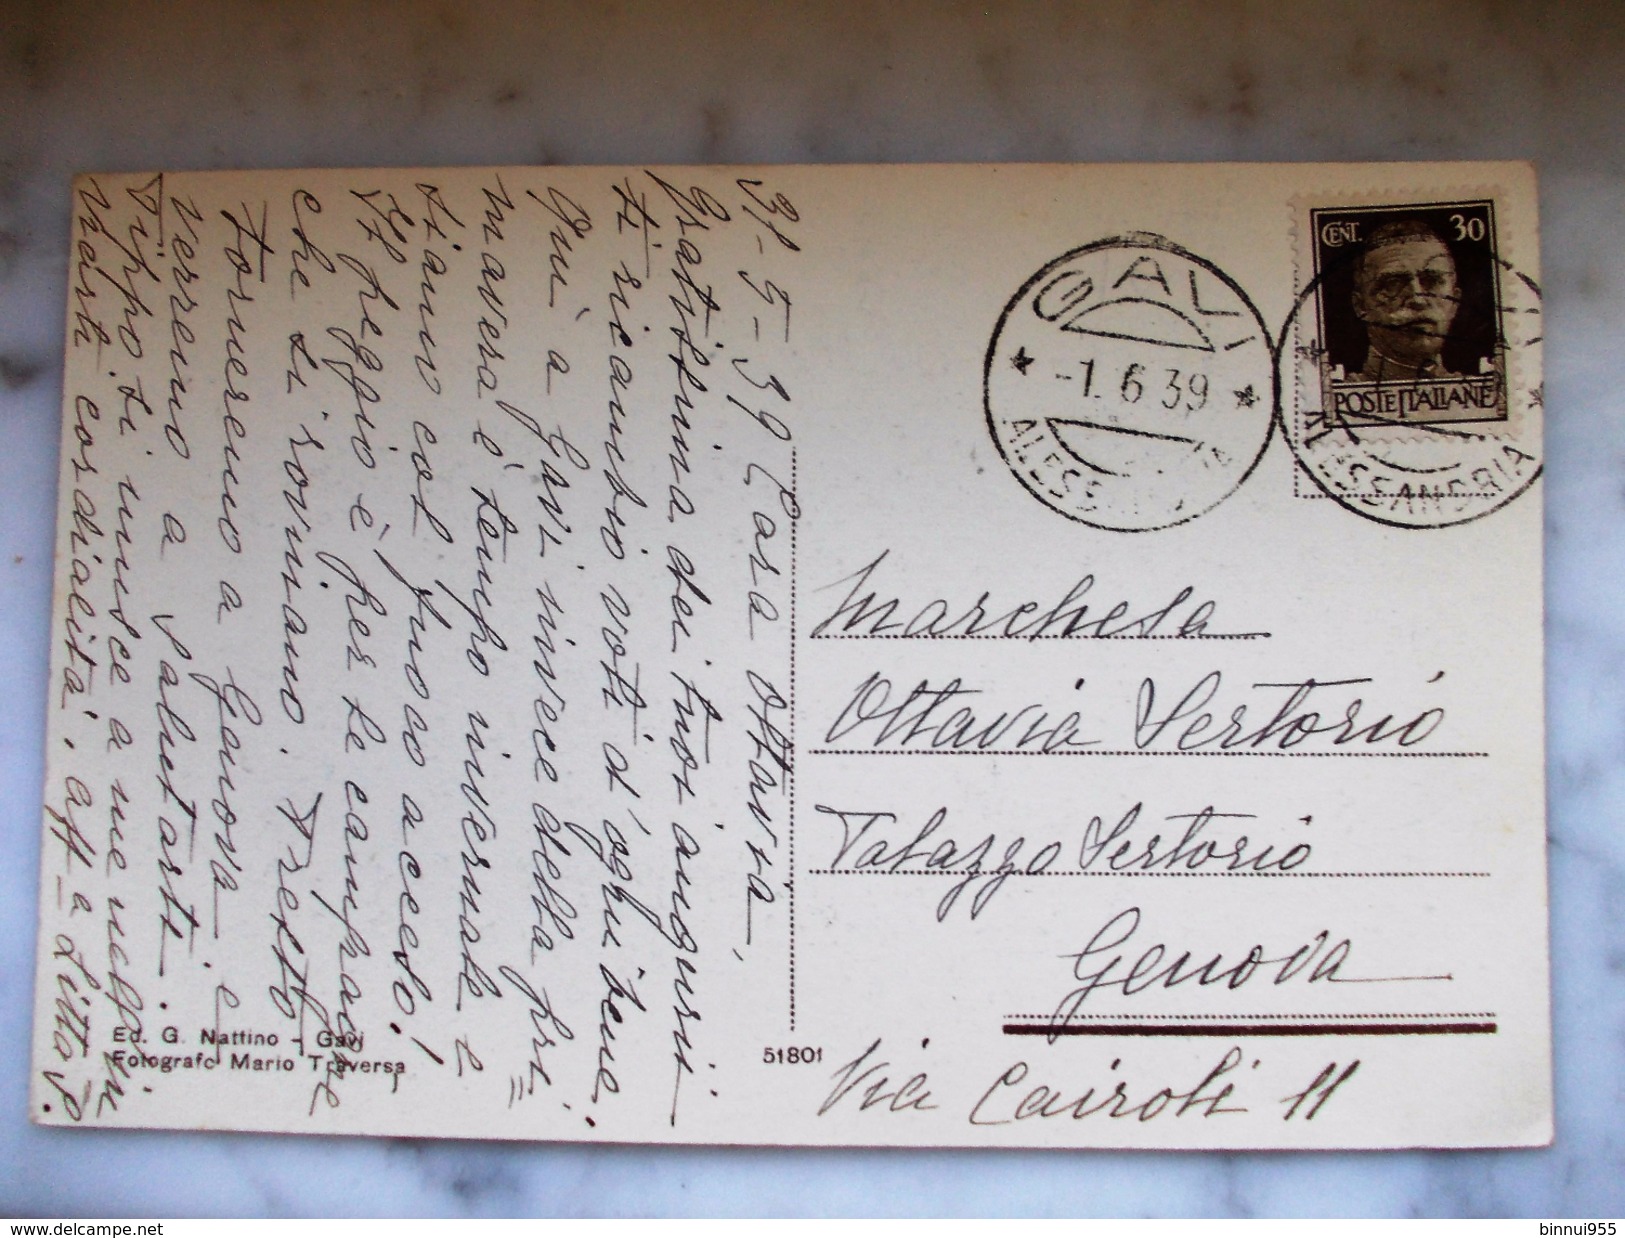 31-5-39 Cara Ottavia,
Gratissima dei tuoi auguri
ti ricambio voti d'ogni bene.
Qui a Gavi invece della pri=
mavera è tempo invernale e
siamo col fuoco acceso!
Il peggio è per le campagne
che si rovinano. Presto
torneremo a Genova e
verremo a salutarti.
Pippo si unisce a me nell'in
viarti cordialità. aff-a Litta P.
CENT. 30
POSTE ITALIANE
GAVI
-1. 6 39
ALESSANDRIA
ALESSANDRIA
Marchesa
Ottavia Sertorio
Palazzo Sertorio
Genova
Via Cairoli 11
Ed. G. Nattino - Gavi
Fotografo Mario Traversa
51801
delcampe.net
binnui955